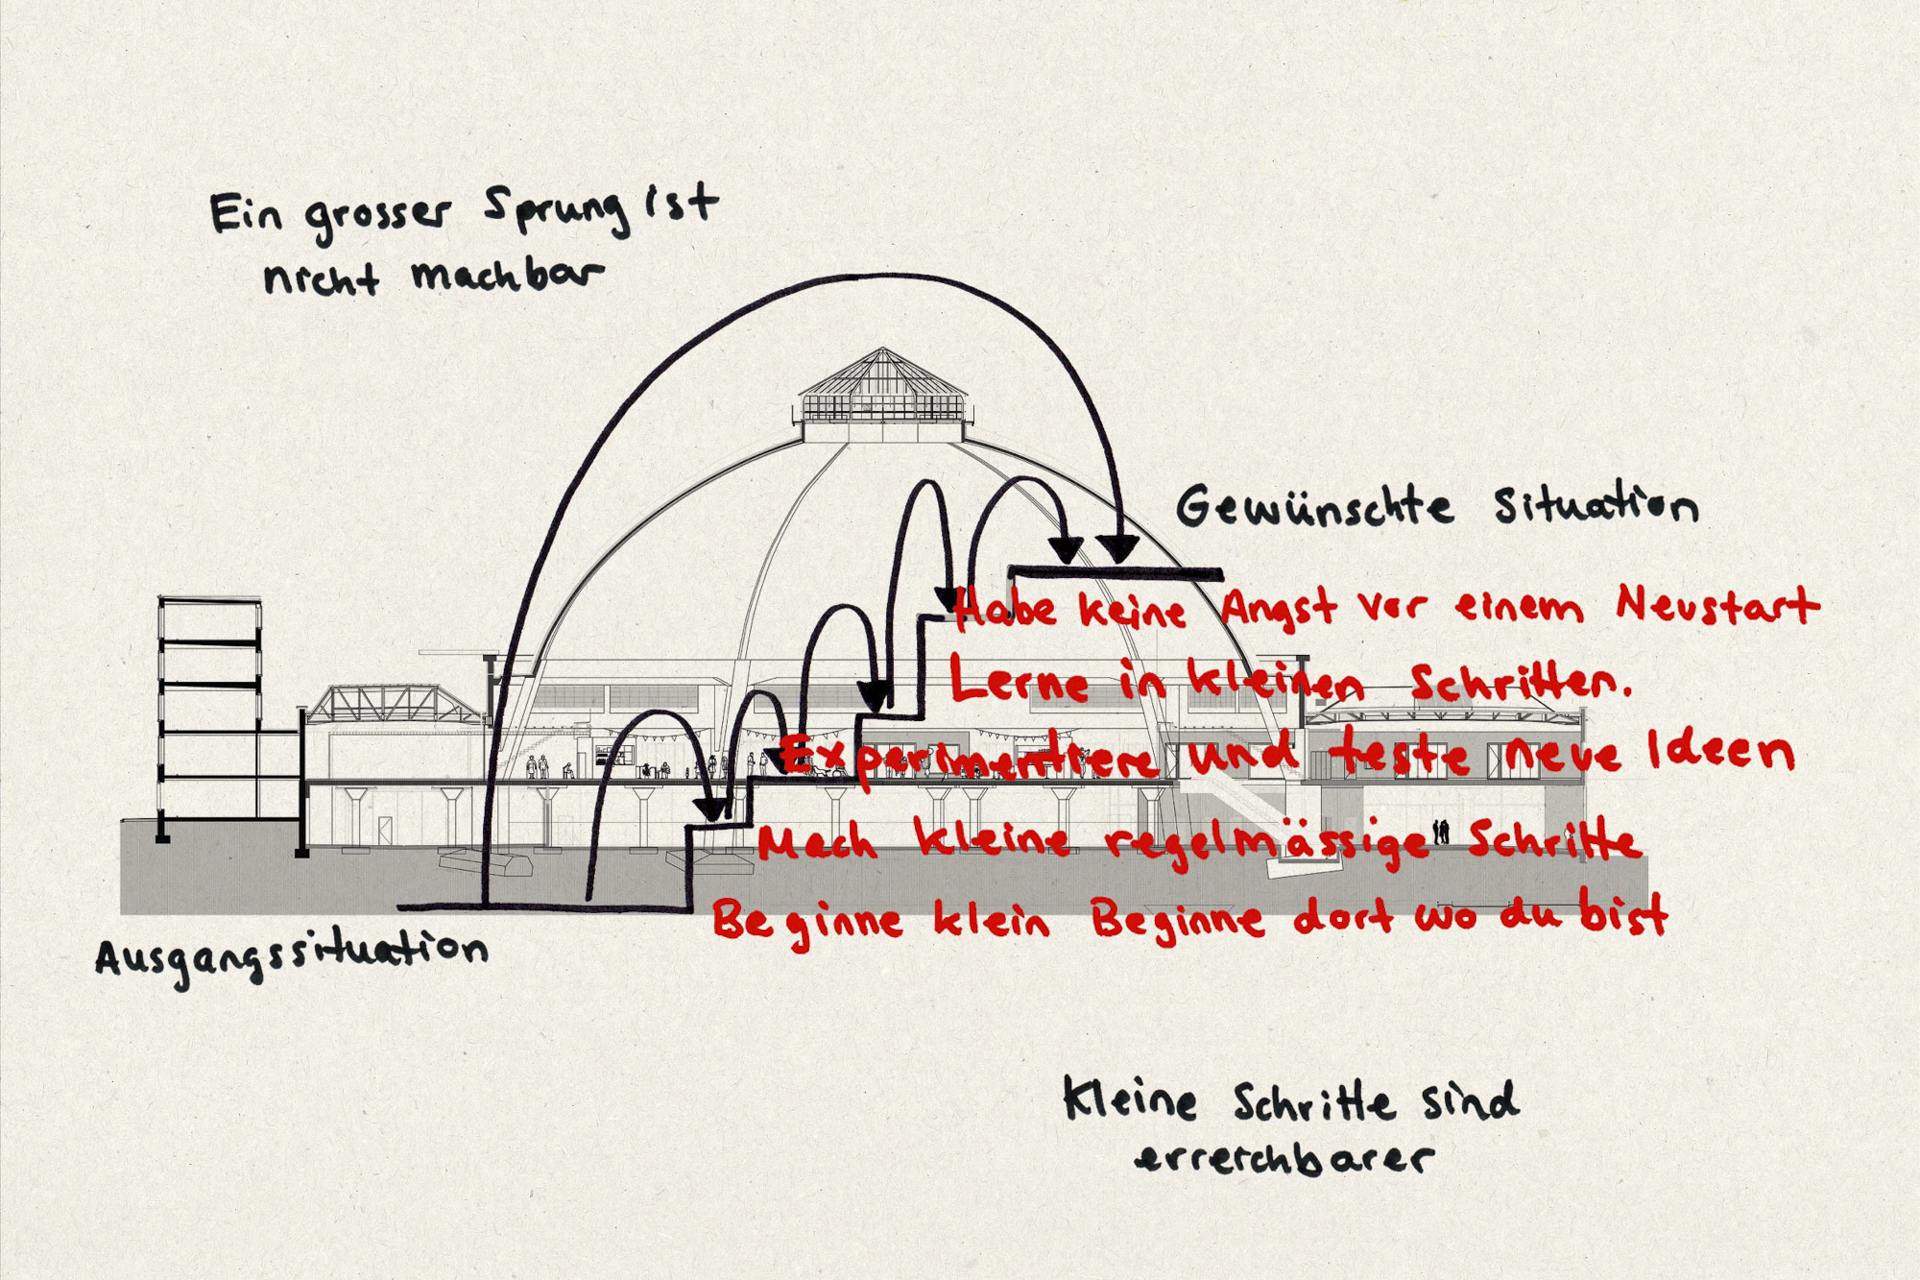 Ein grosser Sprung ist
nicht machbar
Gewünschte Situation
Habe keine Angst vor einem Neustart
Lerne in kleinen Schritten.
Experimentiere und teste neue Ideen
Mach kleine regelmässige Schritte
Beginne klein Beginne dort wo du bist
Ausgangssituation
Kleine Schritte sind
erreichbarer